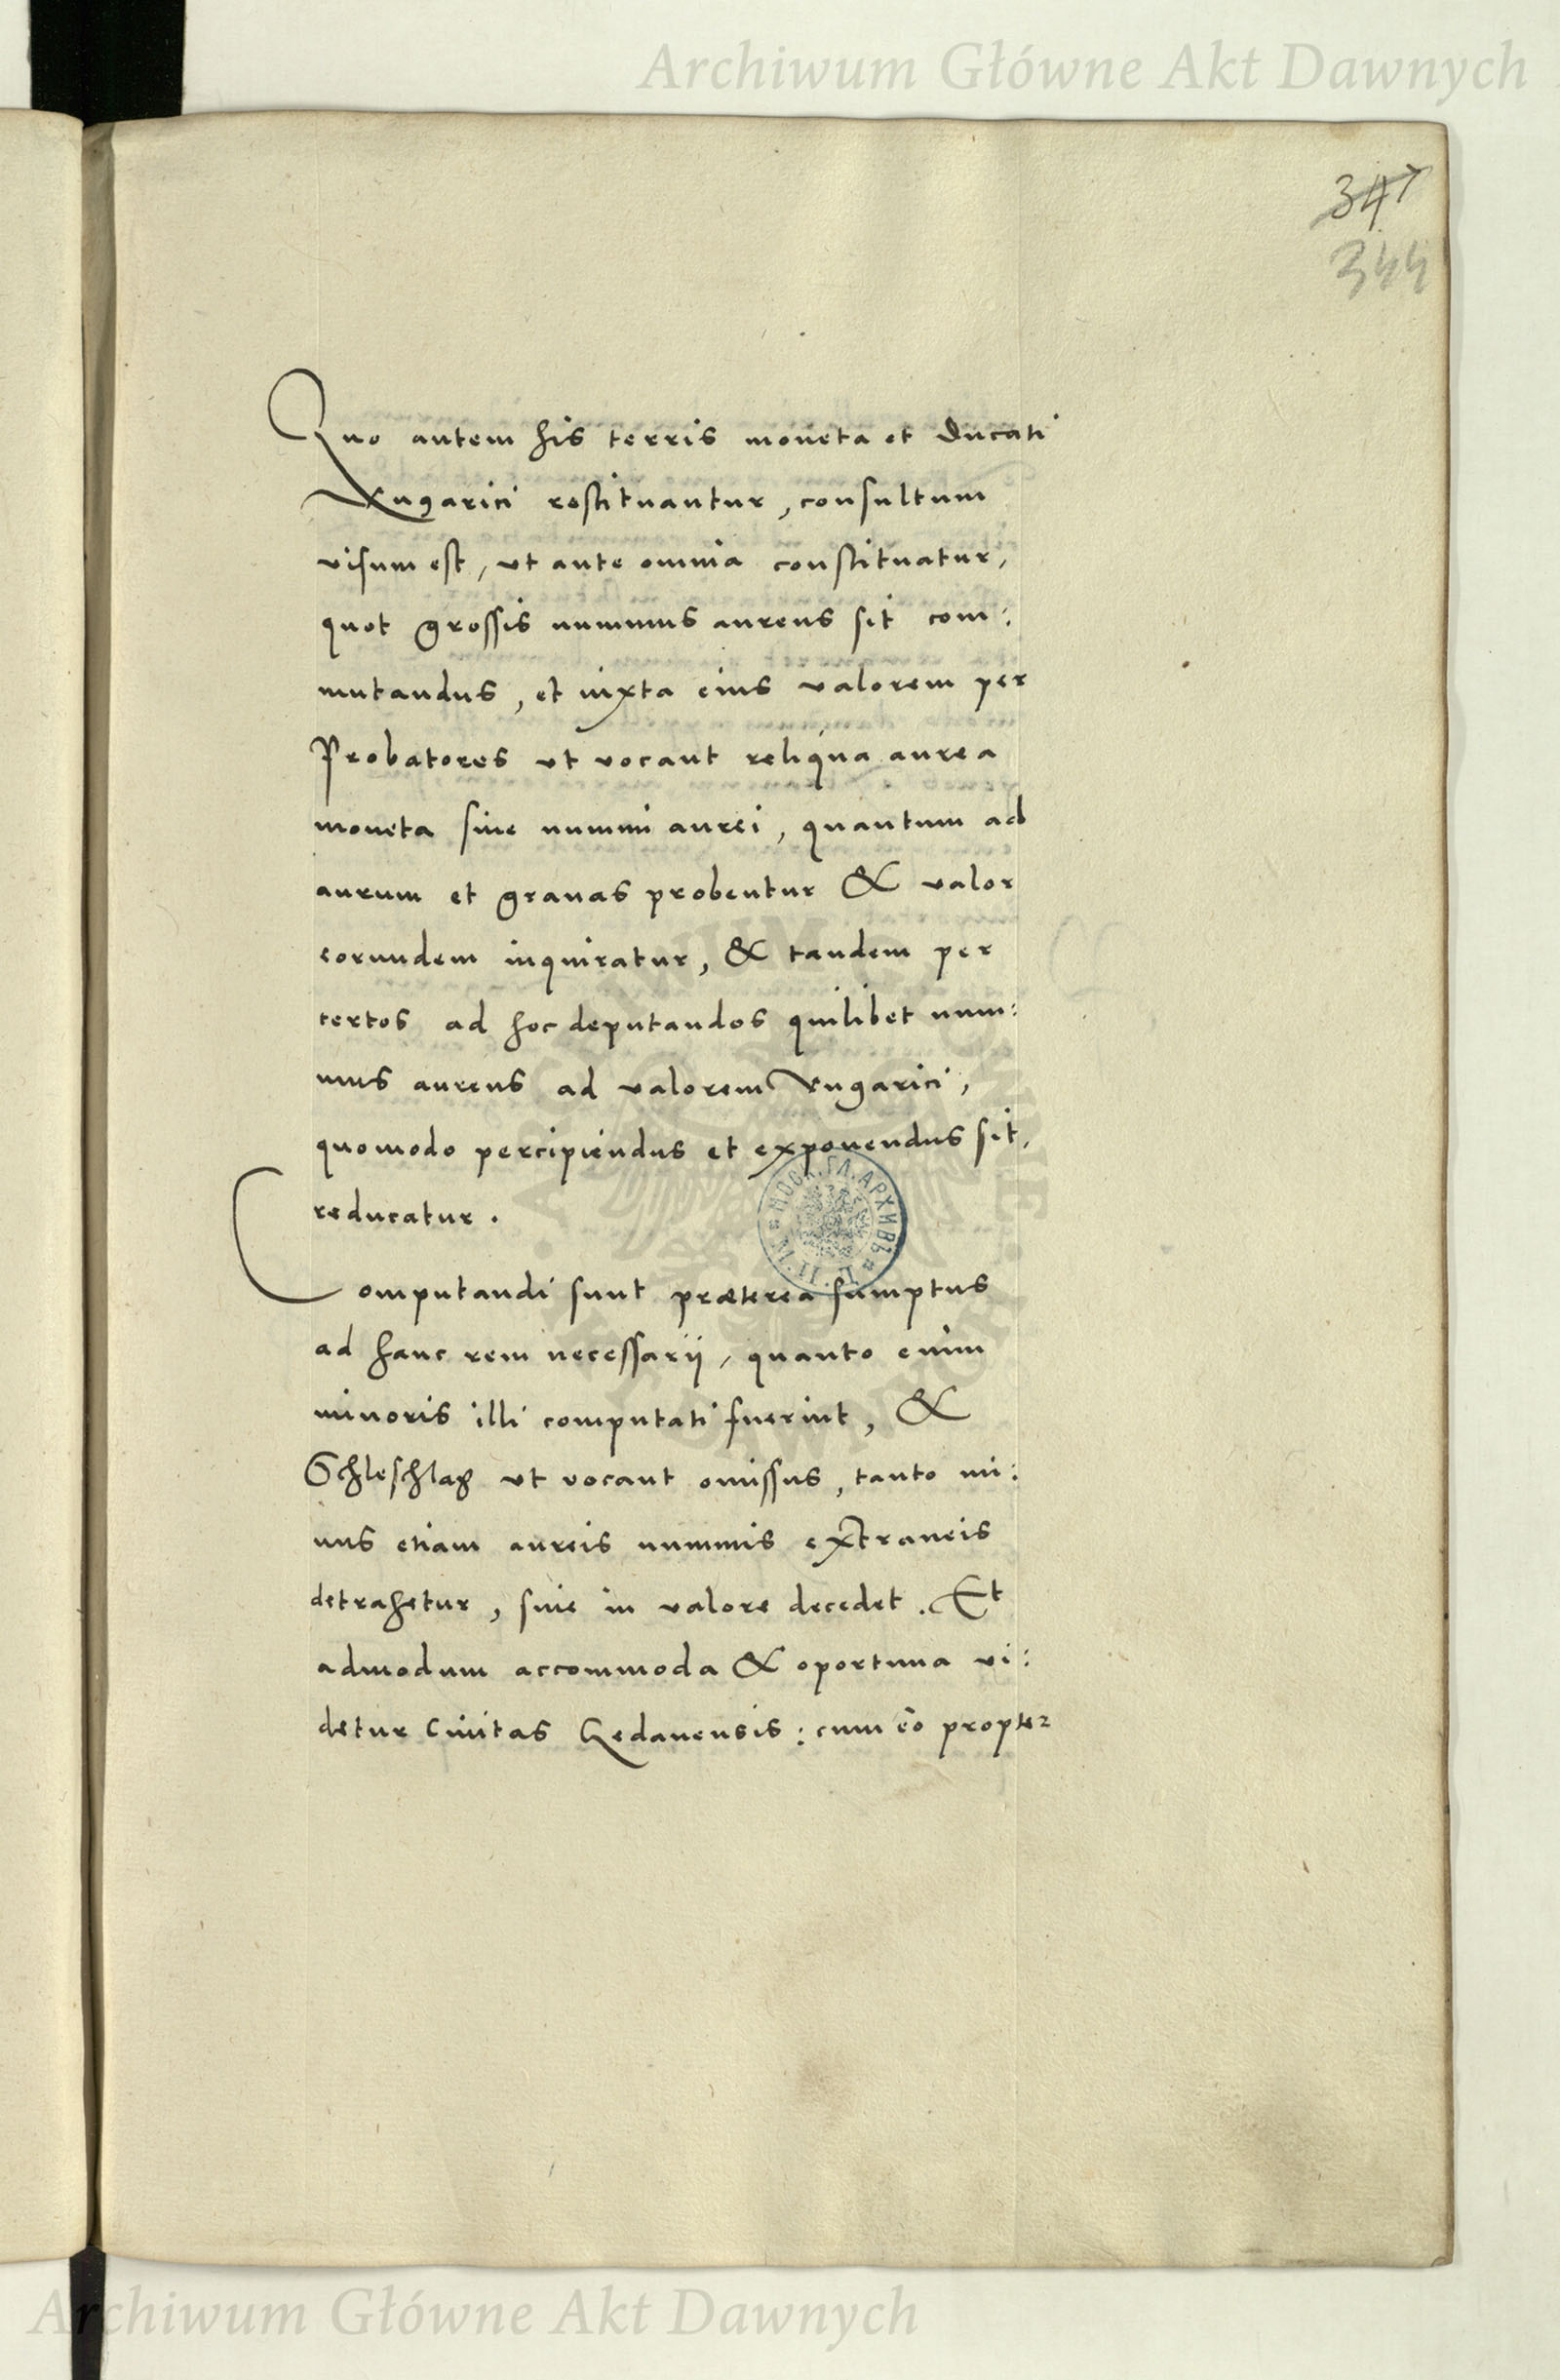 Archiwum Główne Akt Dawnych
347
344
Quo autem his terris moneta et Ducati
Vngarici restituantur, consultum
visum est, vt ante omnia constituatur,
quot grossis nummus aureus sit com:
mutandus, et iuxta eius valorem per
Probatores vt vocant reliqua aurea
moneta siue nummi aurei, quantum ad
aurum et granas probentur & valor
eorundem inquiratur, & tandem per
certos ad hoc deputandos quilibet num:
mus aureus ad valorem Vngarici,
quomodo percipiendus et exponendus sit,
reducatur.
Computandi sunt præterea sumptus
ad hanc rem necessarij, quanto enim
minoris illi computati fuerint, &
Schleschlag vt vocant omissus, tanto mi:
nus etiam aureis nummis extraneis
detrahetur, siue in valore decedet. Et
admodum accommoda & oportuna vi:
detur Ciuitas Gedanensis: cum eo propter
Archiwum Główne Akt Dawnych